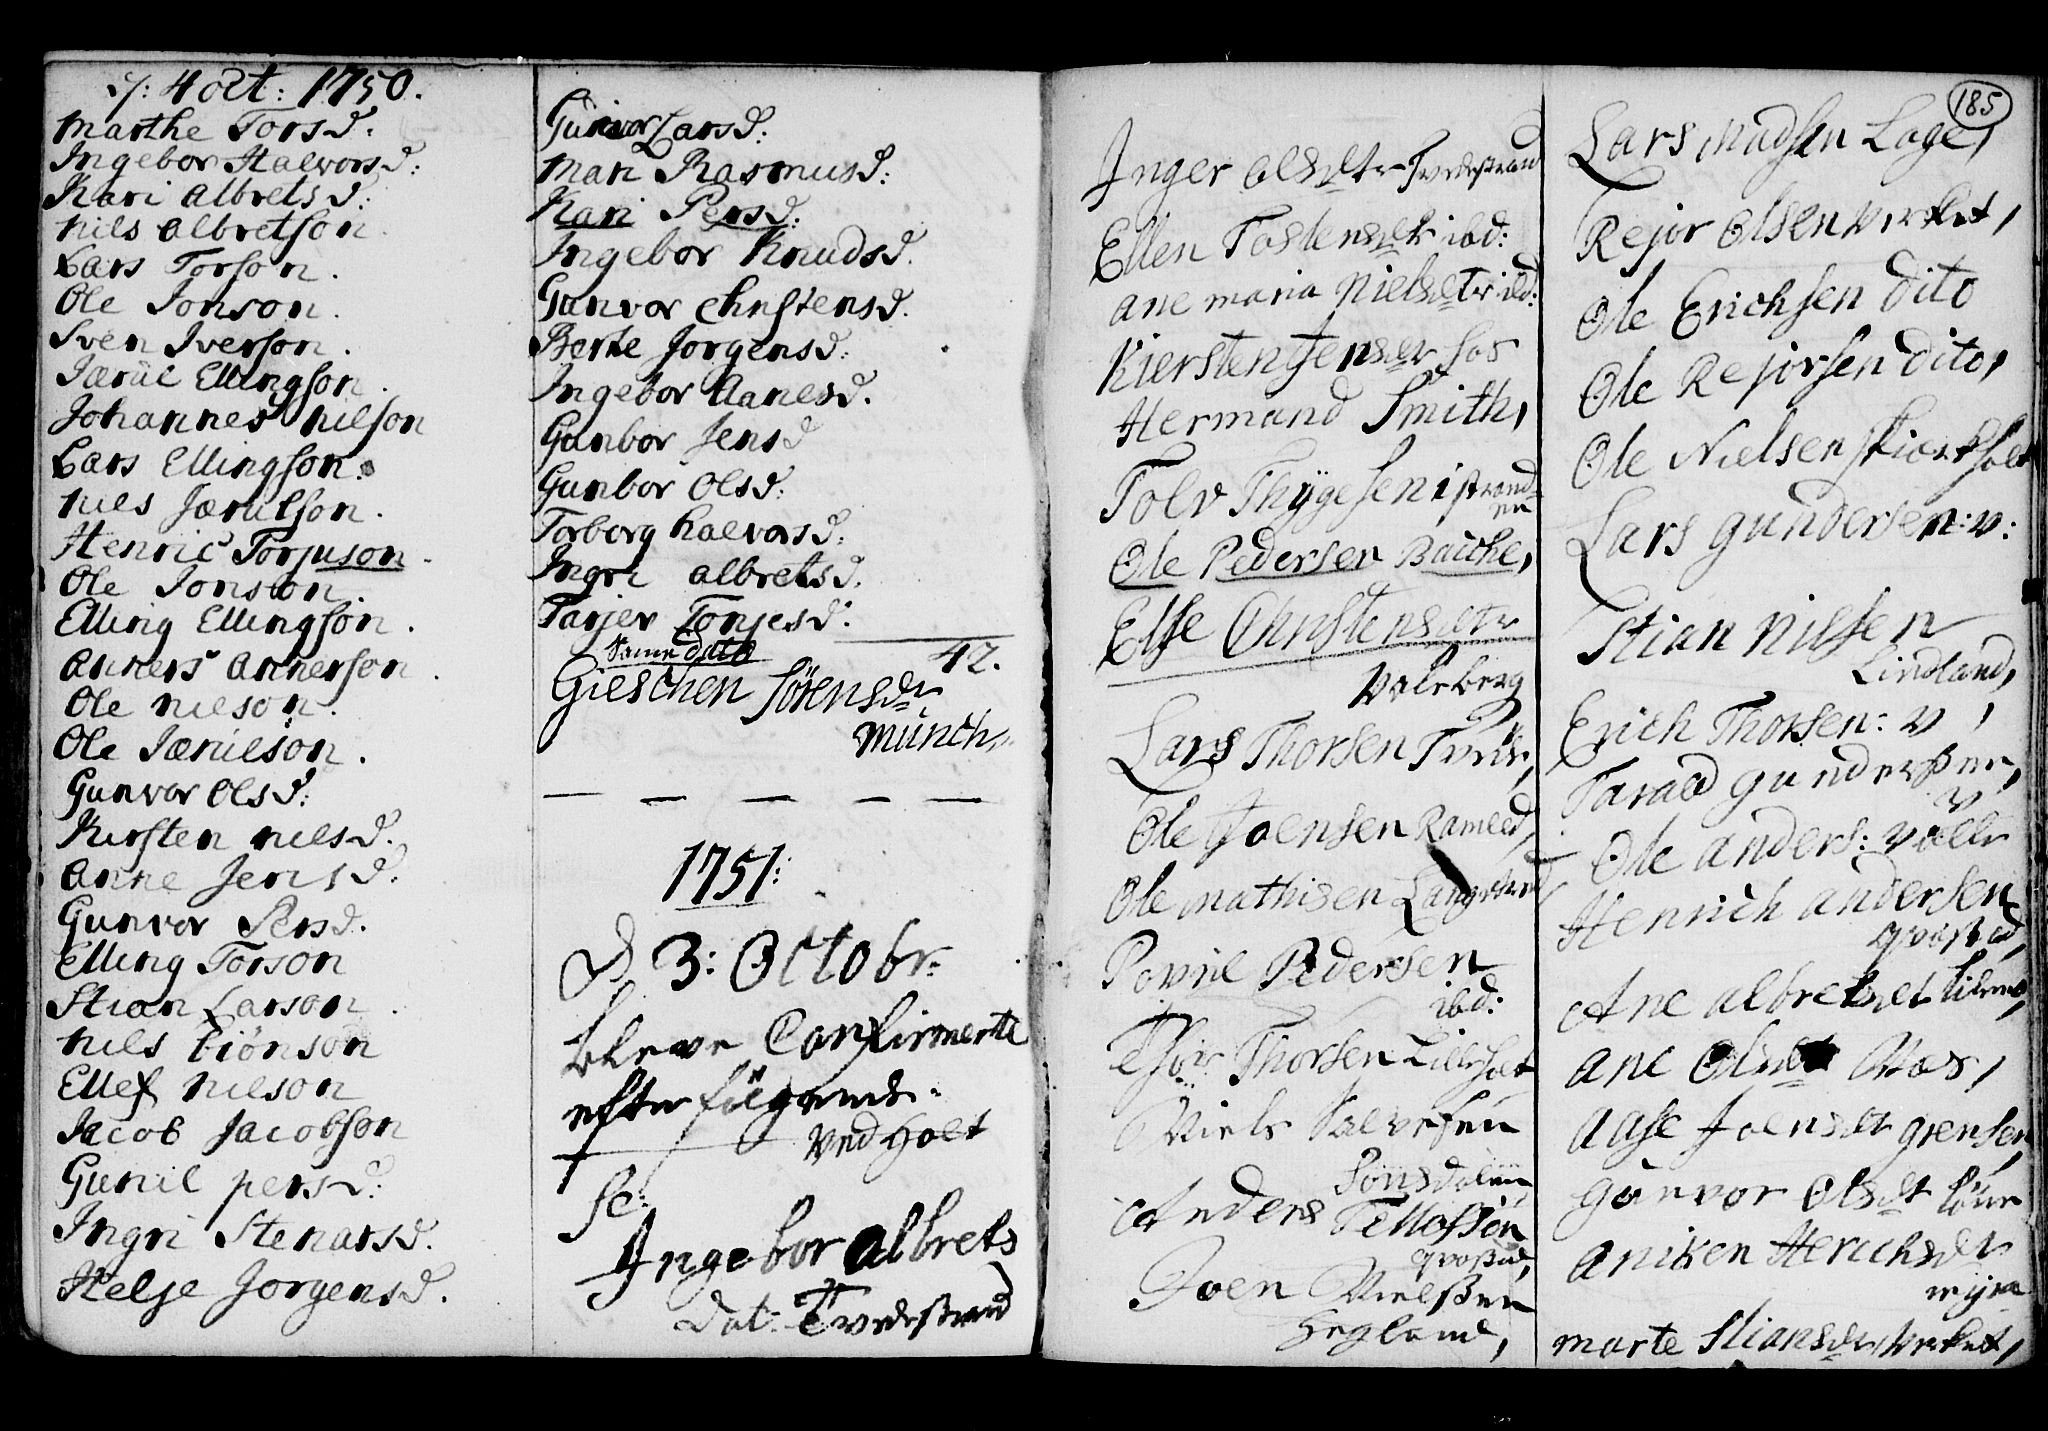 d: 4 oct: 1750.
Marthe Torsd.
Ingebor Halvorsd:
Kari albretsd:
Nils albretson
Lars Torson.
Ole Jonson.
Sven Iverson.
Jærul Ellingson.
Johannes Nilson
Lars Ellingson.
Niels Jærulson.
Henric Torjuson.
Ole Jonson.
Elling Ellingson.
Anners Annerson.
Ole Nielson.
Ole Jærulson.
Gunvor Olsd:
Kirsten Nielsd.
Anne Jensd.
Gunvor Persd.
Elling Torson
Stian Larson.
Niels Biönson
Ellef Nielson
Jacob Jacobson
Gunil persd:
Ingri Stenarsd.
Helje Jorgensd.
Gunvor Larsd:
Mari Rasmusd:
Kari Persd:
Ingebor Knudsd.
Gunvor Christensd.
Berte Jorgensd:
Ingebor Aanesd.
Gunbor Jensd
Gunbor Olsd:
Torborg halvorsd:
Ingri albretsd.
Tarjer Tonjesd:
42.
Same dato
Gieschen Sörensdr
Münch,
1751:
D. 3: Octobr:
bleve Confirmerte
efterfölgende:
Ved Holt
sc:
Ingebor albrets
dat: Tvedestrand
185
Inger Olsdtr Tvedestrand
Ellen Tostensdtr ibd:
ane maria Nielsdtr ibd:
Kiersten Jensdtr hos
Hermand Smith,
Tolv Thygesen i strand-
en
Ole Pedersen Baiche,
Else Christensdtr
Valeberg
Lars Thorsen Tveite,
Ole Joensen Ramled,
Ole Mathisen Langestrand
Povul Pedersen
ibd:
Thor Thorsen Lilleholt
Niels Salvesen
Sönsdalen
Anders Tellofsön
qvastad,
Joen Nielssen
Hegland,
Lars Madsen Lage,
Rejor Olsen Verket,
Ole Erichsen dito
Ole Rejorsen dito,
Ole Nielsen skiærkholt
Lars gundersen: v:
Stian Nilsen
Lindland,
Erich Thorsen: v,
Tarald gundersen,
v
Ole anders: Valle
Henrich andersen
qvastad,
Ane albretsdt
ane Olsdt Næs,
Aase Joensdt grensen,
Gunvor Olsdt
aniken Herichsdr
myra
marte Stiansdr Verket,